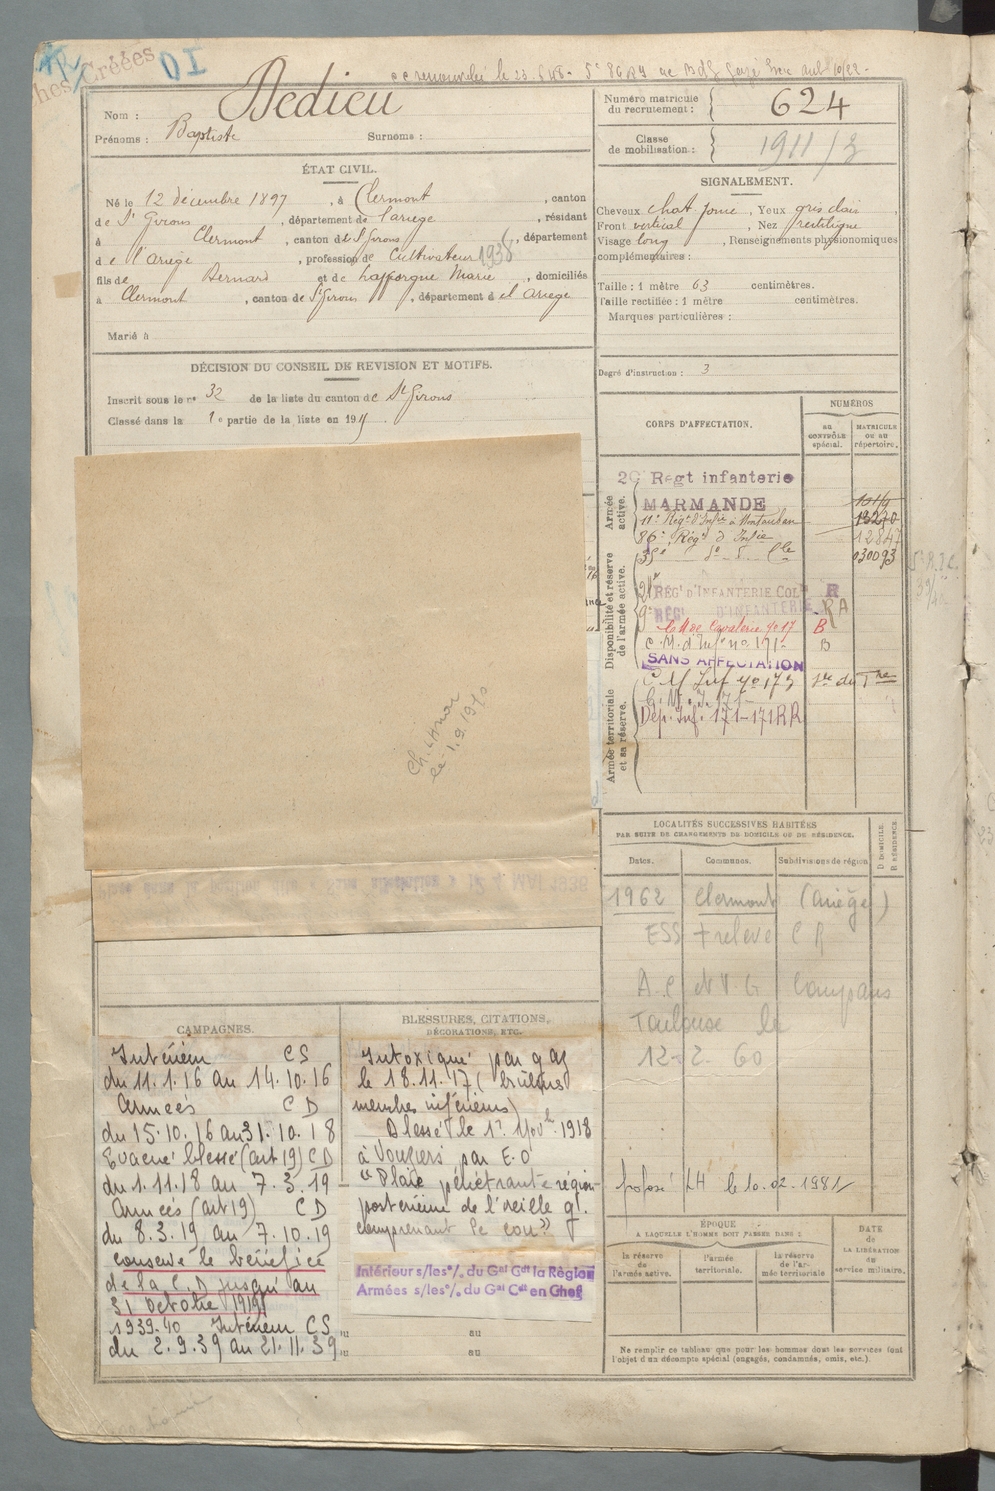 ches Créées
DI
Nom : Dedieu
Prénoms : Baptiste Surnoms :
Numéro matricule
du recrutement : 624
Classe
de mobilisation : 1911/3
ÉTAT CIVIL.
Né le 12 décembre 1897, à Clermont, canton
de St Girons, département de l'ariege, résidant
à Clermont, canton de St Girons, département
de l'Ariège, profession de Cultivateur 1938
fils de Bernard et de Lafforgue Marie, domiciliés
à Clermont, canton de St Girons, département d el Ariege
Marié à
SIGNALEMENT.
Cheveux chat. fonce, Yeux gris clair,
Front vertical, Nez rectiligne
Visage long, Renseignements physionomiques
complémentaires :
Taille : 1 mètre 63 centimètres.
Taille rectifiée : 1 mètre centimètres.
Marques particulières :
Degré d'instruction : 3
DÉCISION DU CONSEIL DE REVISION ET MOTIFS.
Inscrit sous le n° 32 de la liste du canton de St Girons
Classé dans la 1e partie de la liste en 191
CORPS D'AFFECTATION.
NUMÉROS
au
CONTRÔLE
spécial.
MATRICULE
OU AU
répertoire.
Armée
active.
20 Regt infanterie
MARMANDE
11e Régt d'Infie à Montauban
86e Régt d'Infie
12847
030093
Disponibilité et réserve
de l'armée active.
RÉGt D'INFANTERIE COL R
RÉGt D'INFANTERIE RA
de Cavalerie no 17 B
C. M. d'Inf no 171 B
SANS AFFECTATION
C M Inf no 173
Armée territoriale
et sa réserve.
C. M. I. 171
Dép. Inf. 171-171 RR
le 1.9.1970
Placé dans la position dite « Sans affectation » le 4 MAI 1938
LOCALITÉS SUCCESSIVES HABITÉES
PAR SUITE DE CHANGEMENTS DE DOMICILE OU DE RÉSIDENCE.
Dates. Communes. Subdivisions de région
D DOMICILE
R RÉSIDENCE
1962 Clermont (Ariège)
ESS + relevé C R
A.C Compans
Toulouse le
12-2-60
proposé LH le 10.02.1981
CAMPAGNES.
Intérieur CS
du 11.1.16 au 14.10.16
Armées CD
du 15.10.16 au 31.10.18
Evacué blessé (art 19) CD
du 1.11.18 au 7.3.19
Armées (art 19) CD
du 8.3.19 au 7.10.19
conserve le bénéfice
de la C.D jusqu'au
31 octobre 1919
1939-40 Intérieur CS
du 2.9.39 au 21.11.39
au
au
BLESSURES, CITATIONS,
DÉCORATIONS, ETC.
Intoxiqué par gaz
le 18.11.17 (brûlures
membres inférieurs)
Blessé le 1er Novbre 1918
à Vouziers par E.O
"Plaie pénétrante région
postérieure de l'oreille g.
comprenant le cou"
Intérieur s/les °/. du Gal Gdt la Région
Armées s/les °/. du Gal Cdt en Chef
ÉPOQUE
A LAQUELLE L'HOMME DOIT PASSER DANS :
la réserve
de
l'armée active.
l'armée
territoriale.
la réserve
de l'ar-
mée territoriale
DATE
de
LA LIBÉRATION
du
service militaire.
Ne remplir ce tableau que pour les hommes dont les services font
l'objet d'un décompte spécial (engagés, condamnés, omis, etc.).